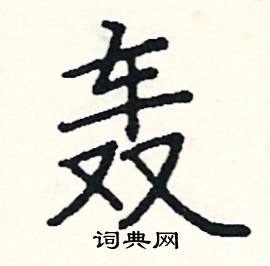 轰
词典网